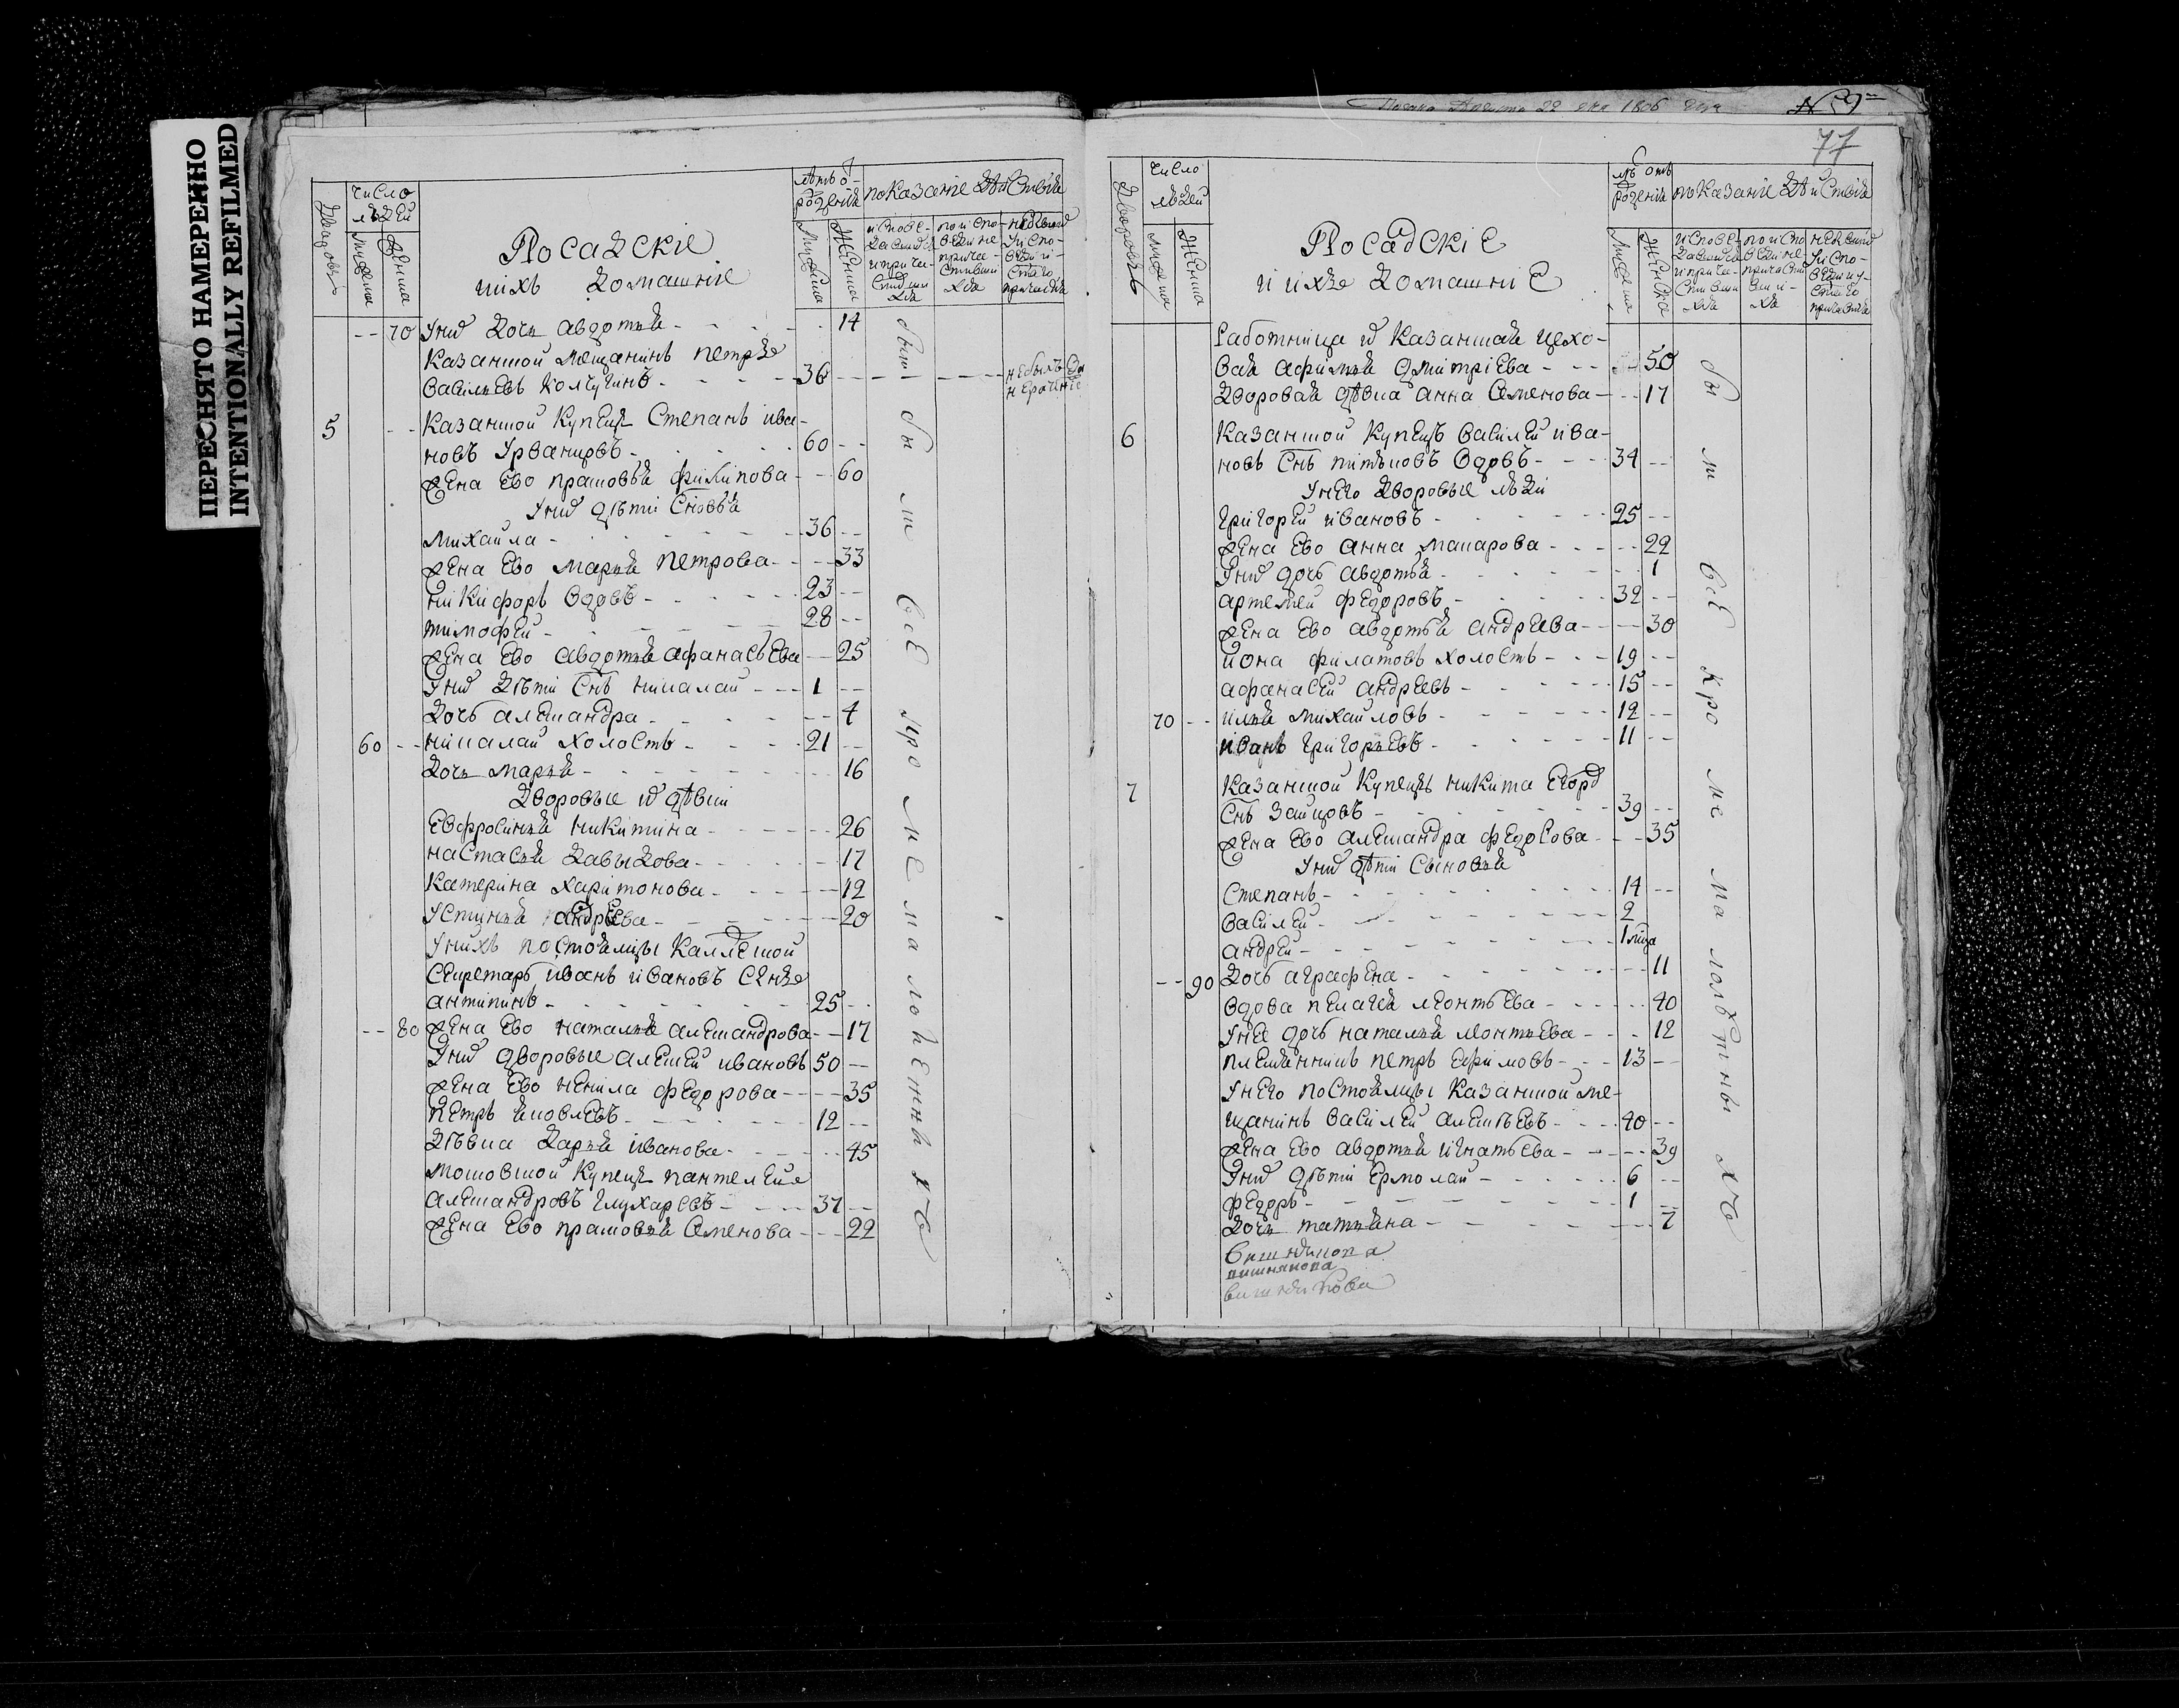 ПЕРЕСНЯТО НАМЕРЕННО
INTENTIONALLY REFILMED
дворовъ
число
людей
мужеска
женска
Посадскіе
иихъ домашніе
лѣтъ о-
роженія
мужеска
женска
показаніе дѣйствія
испове-
поиспо-
70 унихъ дочь авдотья 14
казанской мещанинъ петръ
васильевъ колчугинъ 36
небылъ за
нераченіе
5 казанской купецъ степанъ ива-
новъ урванцовъ 60
жена ево прасковья филипова 60
унихъ дѣти сновья
михаила 36
жена ево марья петрова 33
никифоръ вдовъ 23
тимофей 28
жена ево авдотья афанасьева 25
унихъ дѣти снъ николай 1
дочь александра 4
60 николай холостъ 21
дочь марья 16
дворовые дѣвки
евфросинья никитина 26
настасья давыдова 17
катерина харитонова 12
устинья андреева 20
унихъ постоялцы
секретарь иванъ ивановъ снъ
антипинъ 25
80 жена ево наталья александрова 17
унихъ дворовые алексей ивановъ 50
жена ево ненила федорова 35
петръ яковлевъ 12
дѣвка дарья иванова 45
московской купецъ пантелей
александровъ глухаревъ 37
жена ево прасковья семенова 22
были
были всѣ кроме малолетныхъ
августа 22 дня 1806 года
77
дворовъ
число
людей
мужеска
женска
Посадскіе
иихъ домашніе
лѣ отъ
роженія
мужеска
женска
показаніе дѣйствія
работница казанская цехо-
вая афимья дмитріева 50
дворовая дѣвка анна семенова 17
6 казанской купецъ василей ива-
новъ снъ вдовъ 34
унего дворовые люди
григорей ивановъ 25
жена ево анна макарова 22
унихъ дочь авдотья 1
артемей федоровъ 32
жена ево авдотья андреева 30
иона филатовъ холостъ 19
афанасей андреевъ 15
70 илья михайловъ 12
иванъ григорьевъ 11
7 казанской купецъ никита егоровъ
снъ зайцовъ 39
жена ево александра федорова 35
унихъ дѣти сыновья
степанъ 14
василей 2
андрей 1 мца
90 дочь аграфена 11
вдова пелагея леонтьева 40
унее дочь наталья леонтьева 12
племянникъ петръ ефимовъ 13
унего постоялцы казанской ме-
щанинъ василей алексеевъ 40
жена ево авдотья игнатьева 39
унихъ дѣти ермолай 6
федоръ 1
дочь татьяна 7
вишнякова
вишнякова
вишнякова
были всѣ кроме малолѣтныхъ